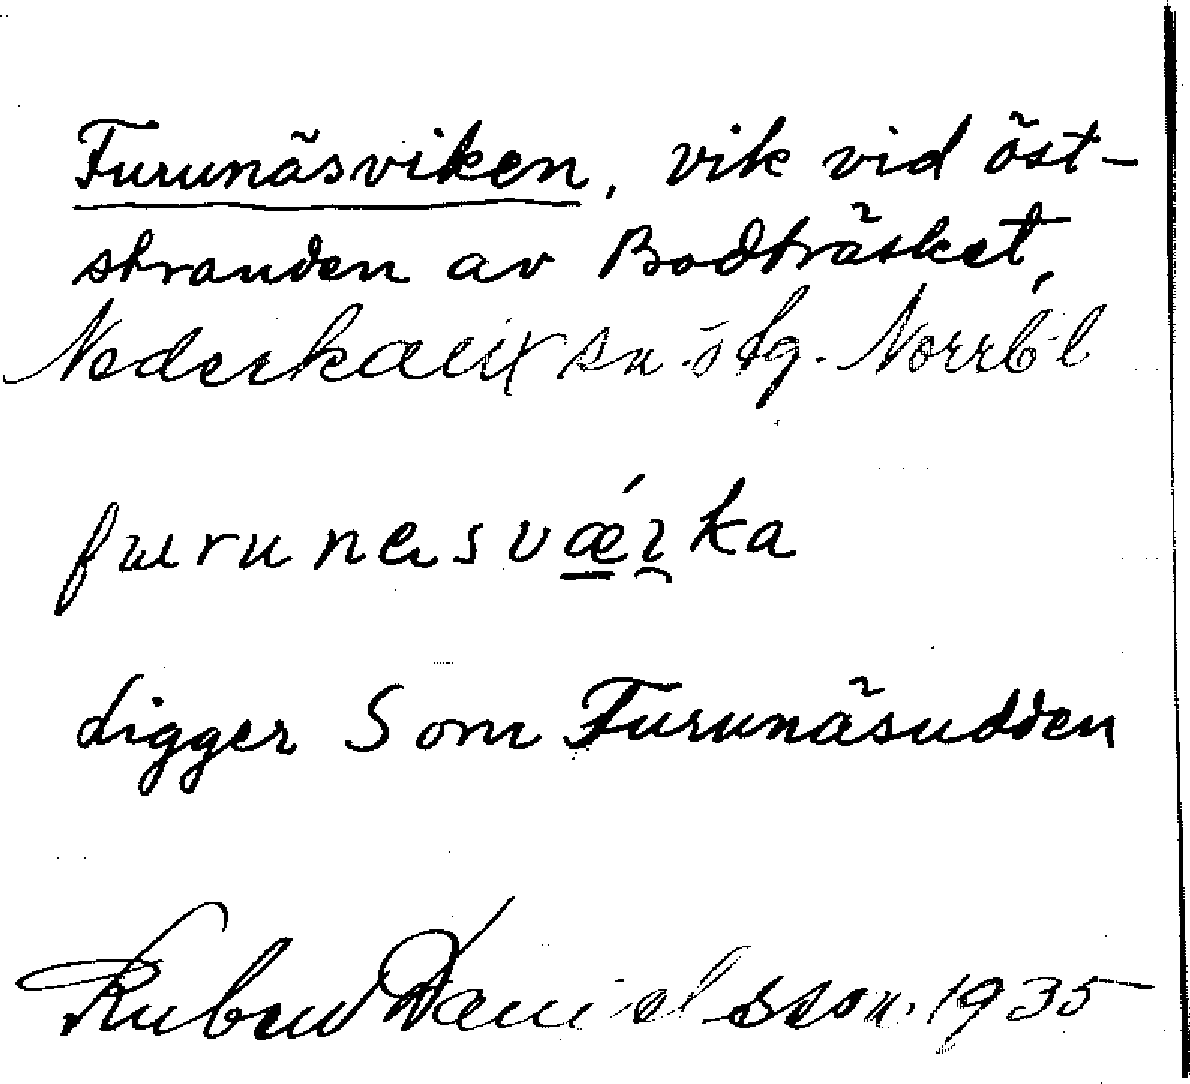 Furunäsviken, vik vid öst-
stranden av Bodträsket,
Nederkalix sn o tg. Norrb. l
furunesvǽka
ligger som Furunäsudden
Ruben Danielsson. 1935